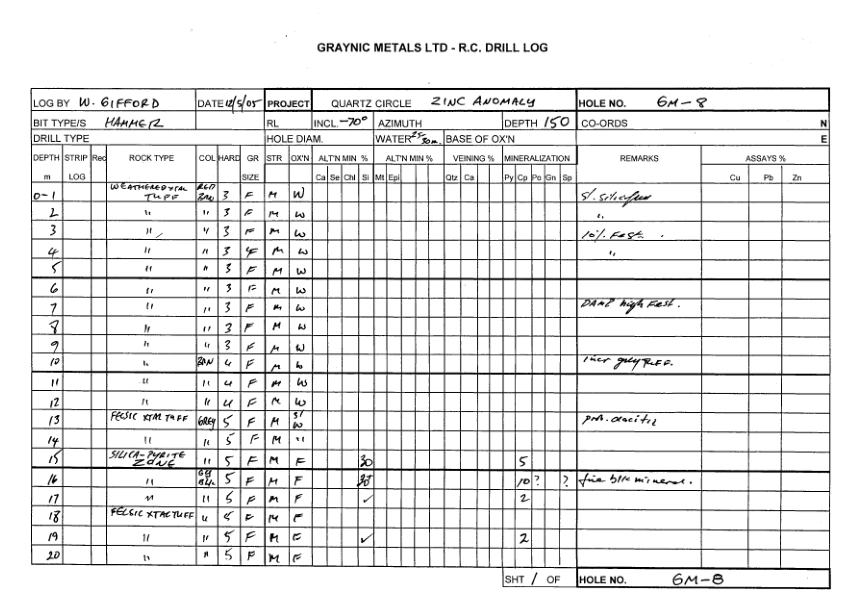 GRAYNIC METALS LTD - R.C. DRILL LOG
LOG BY W. GIFFORD DATE 12/5/05 PROJECT QUARTZ CIRCLE ZINC ANOMALY HOLE NO. GM-8
BIT TYPE/S HAMMER RL INCL. -70° AZIMUTH DEPTH 150 CO-ORDS N
DRILL TYPE HOLE DIAM. WATER 25-30m. BASE OF OX'N E
DEPTH STRIP Rec ROCK TYPE COL HARD GR STR OX'N ALT'N MIN % ALT'N MIN % VEINING % MINERALIZATION REMARKS ASSAYS %
m LOG SIZE Ca Se Chl Si Mt Epi Qtz Ca Py Cp Po Gn Sp Cu Pb Zn
0-1 WEATHERED XTAL TUFF RED BRN 3 F M W Sl. silicified
2 " " 3 F M W "
3 " " 3 F M W 10% Fest.
4 " " 3 F M W "
5 " " 3 F M W
6 " " 3 F M W
7 " " 3 F M W DAMP high Fest.
8 " " 3 F M W
9 " " 3 F M W
10 " BRN 4 F M W incr grey TUFF.
11 " " 4 F M W
12 " " 4 F M W
13 FELSIC XTAL TUFF GREY 5 F M Sl W prob. dacitic
14 " " 5 F M "
15 SILICA-PYRITE ZONE " 5 F M F 30 5
16 " GRY BLK 5 F M F 30 10 ? ? fine blk mineral.
17 " " 5 F M F ✓ 2
18 FELSIC XTAL TUFF " 5 F M F
19 " " 5 F M F ✓ 2
20 " " 5 F M F
SHT 1 OF HOLE NO. GM-8